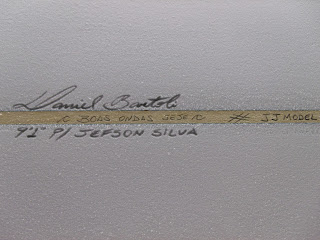 Daniel Bortoli
10 BOAS ONDAS JEJE 10 # JJ MODEL
9'1" P/ JEFSON SILVA